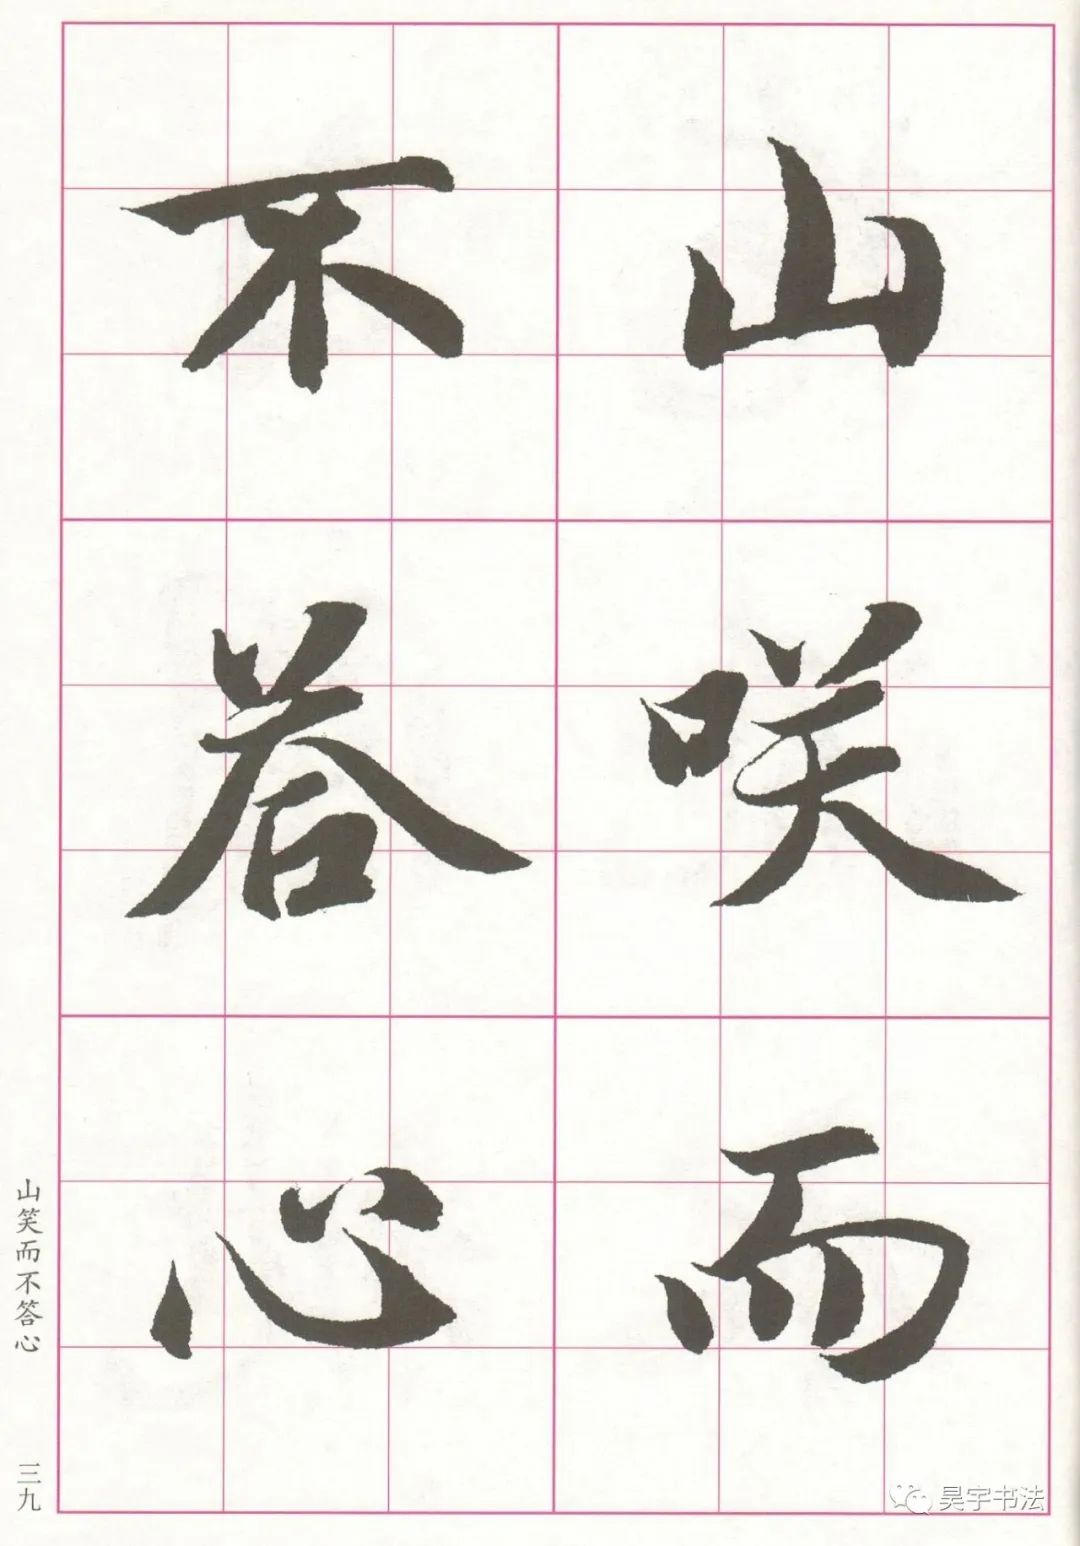 山咲而
不荅心
山笑而不答心
三九
昊宇书法